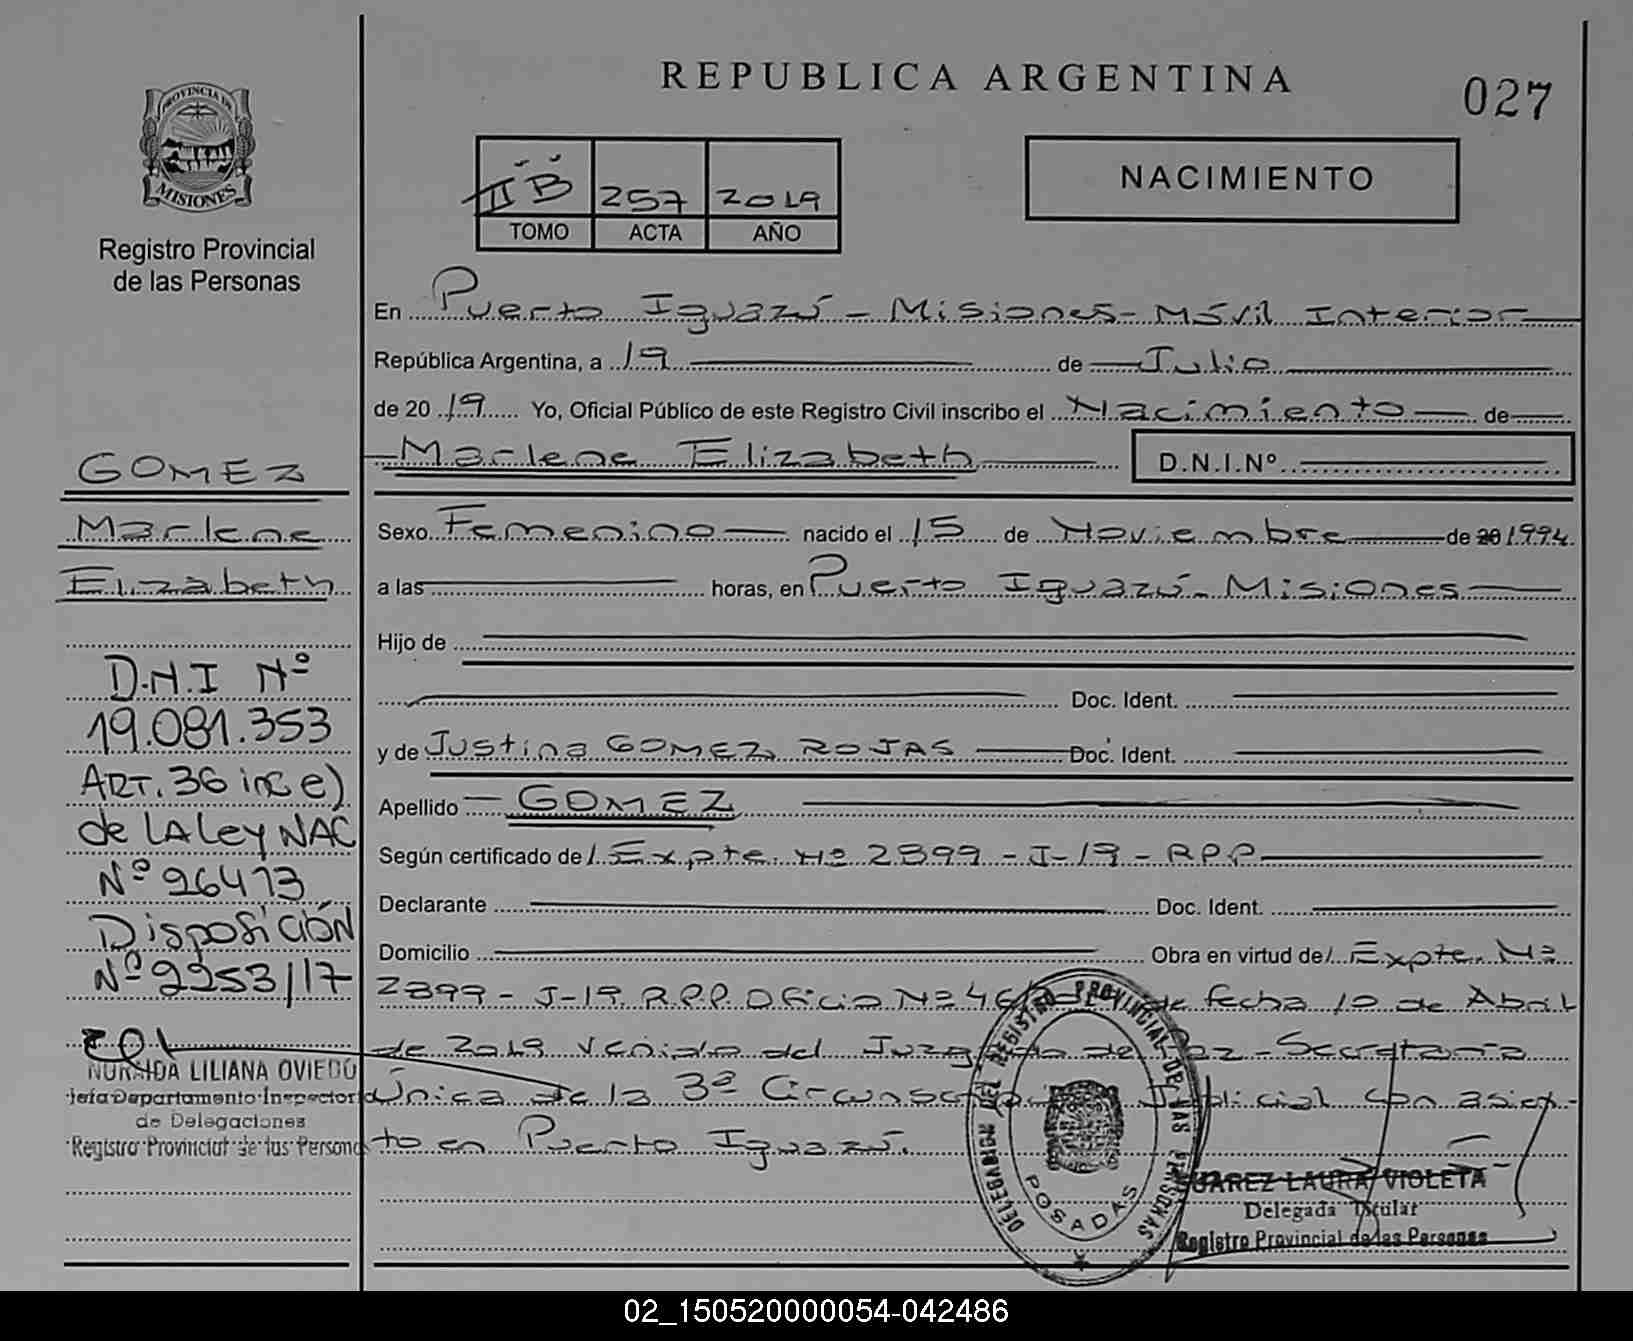 REPUBLICA ARGENTINA
027
PROVINCIA DE
MISIONES
Registro Provincial
de las Personas
II B 257 2019
TOMO ACTA AÑO
NACIMIENTO
En Puerto Iguazú - Misiones - Móvil Interior
República Argentina, a 19 de Julio
de 2019 Yo, Oficial Público de este Registro Civil inscribo el Nacimiento de
Marlene Elizabeth D.N.I.Nº
Sexo Femenino nacido el 15 de Noviembre de 20 1994
a las horas, en Puerto Iguazú - Misiones
Hijo de
Doc. Ident.
y de Justina GOMEZ ROJAS Doc. Ident.
Apellido GOMEZ
Según certificado de Expte. Nº 2899 - J-19 - R.P.P
Declarante Doc. Ident.
Domicilio Obra en virtud de Expte. Nº
2899 - J-19 R.P.P. Oficio Nº de fecha 10 de Abril
de 2019 venido del Juzgado de Paz - Secretaría
Única de la 3ª Circunscripción Judicial con asien-
to en Puerto Iguazú.
GOMEZ
Marlene
Elizabeth
D.N.I Nº
19.081.353
ART. 36 inc e)
de LA Ley NAC
Nº 26413
Disposición
Nº 2253/17
LILIANA OVIEDO
Jefa Departamento Inspector
de Delegaciones
Registro Provincial de las Persona
DELEGACION DEL REGISTRO PROVINCIAL DE LAS PERSONAS
POSADAS
SUAREZ LAURA VIOLETA
Delegada Titular
Registro Provincial de las Personas
02_150520000054-042486